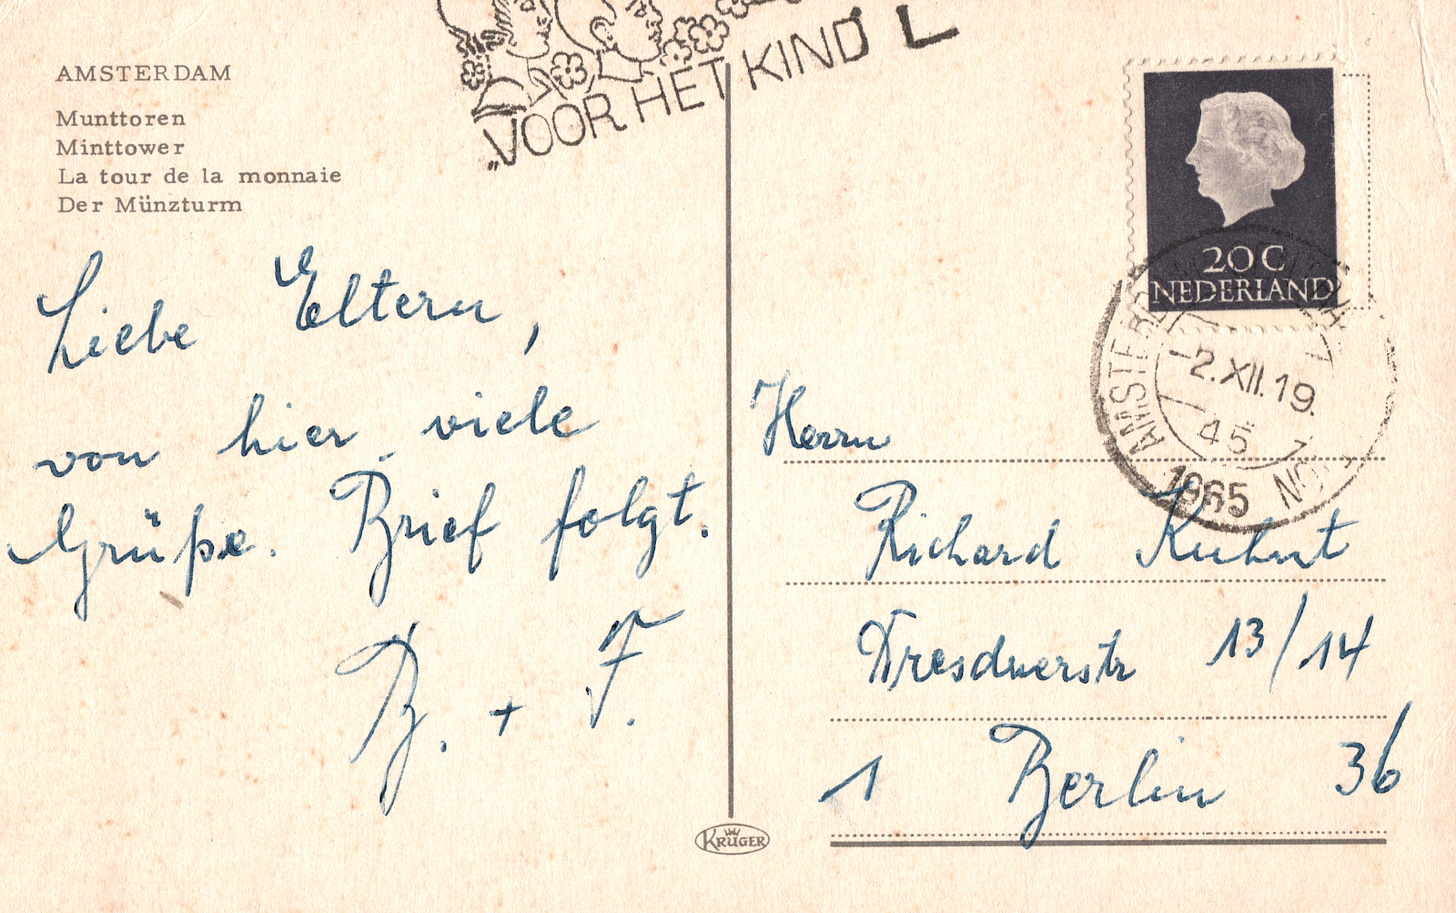 AMSTERDAM
Munttoren
Minttower
La tour de la monnaie
Der Münzturm
„VOOR HET KIND"
20C
NEDERLAND
-2.XII.19.
45
1965
Liebe Eltern,
von hier viele
Grüße. Brief folgt.
B. + F.
Herrn
Richard Kuhnt
Dresdnerstr 13/14
1 Berlin 36
KRÜGER